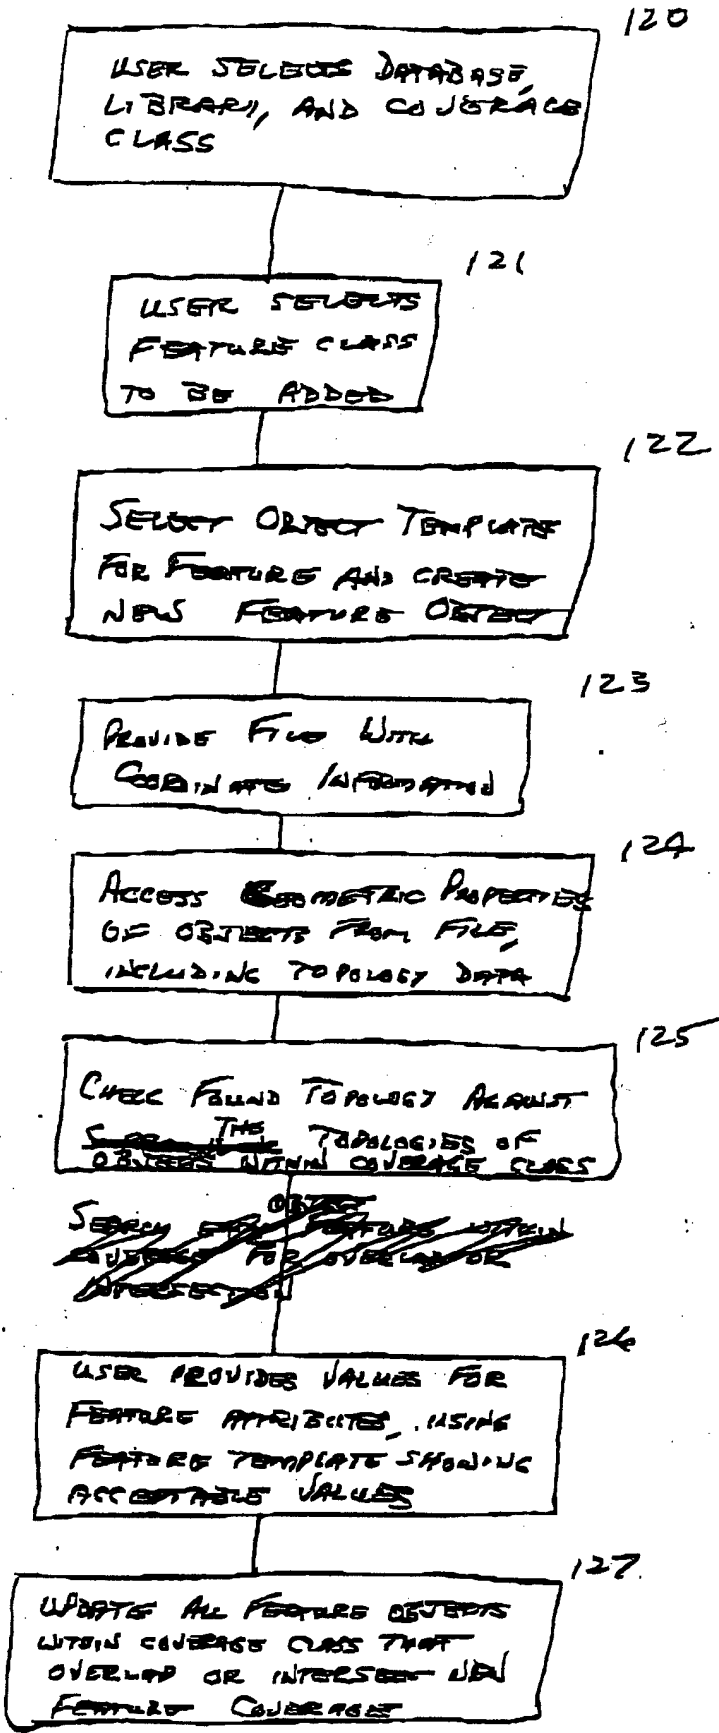 120
USER SELECTS DATABASE,
LIBRARY, AND COVERAGE
CLASS
121
USER SELECTS
FEATURE CLASS
TO BE ADDED
122
SELECT OBJECT TEMPLATE
FOR FEATURE AND CREATE
NEW FEATURE OBJECT
123
PROVIDE FILE WITH
COORDINATE INFORMATION
124
ACCESS GEOMETRIC PROPERTIES
OF OBJECTS FROM FILE,
INCLUDING TOPOLOGY DATA
125
CHECK FOUND TOPOLOGY AGAINST
THE TOPOLOGIES OF
OBJECTS WITHIN COVERAGE CLASS
OBJECT
SEARCH EACH FEATURE WITHIN
COVERAGE FOR OVERLAP OR
INTERSECTION
126
USER PROVIDES VALUES FOR
FEATURE ATTRIBUTES, USING
FEATURE TEMPLATE SHOWING
ACCEPTABLE VALUES
127
UPDATE ALL FEATURE OBJECTS
WITHIN COVERAGE CLASS THAT
OVERLAP OR INTERSECT NEW
FEATURE COVERAGE